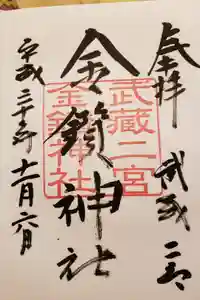 奉拝 武蔵二宮
武蔵二宮
金鑚神社
金鑚神社
平成三十年十一月六日